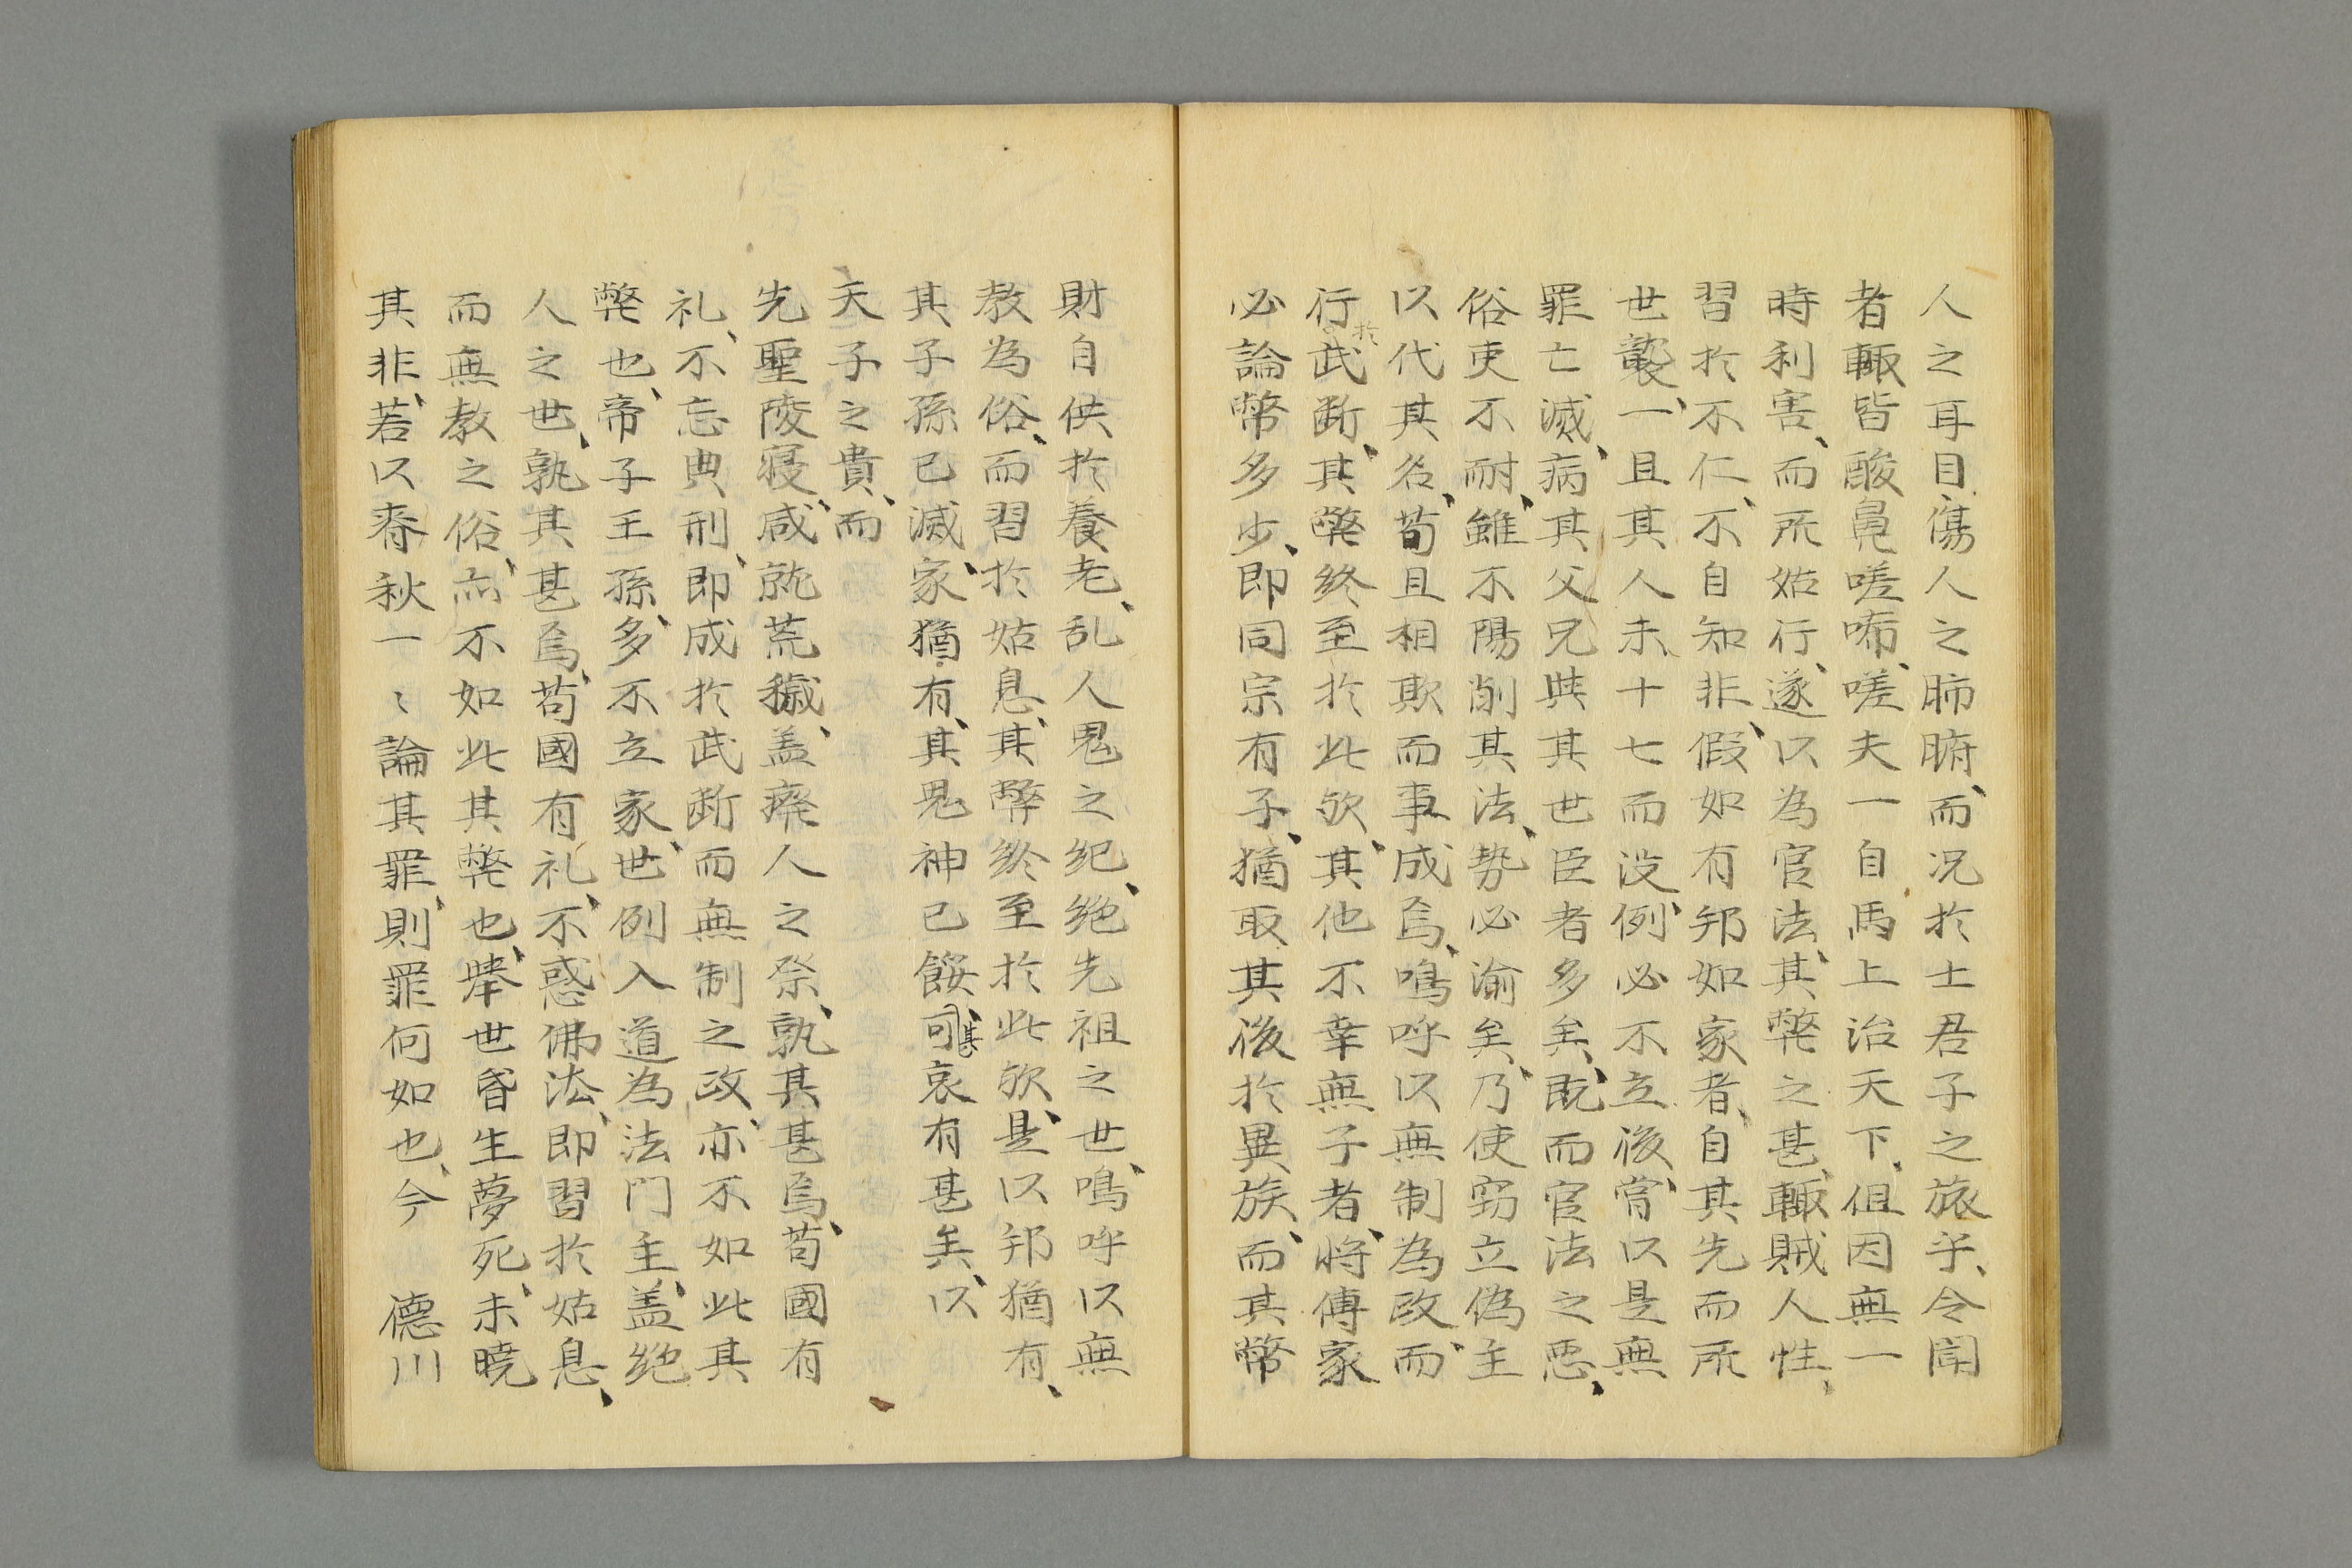 人之耳目傷人之肺腑、而况於士君子之旅乎、令聞
者輙皆酸鼻嗟唏、嗟夫一自馬上治天下、但因無一
時利害、而所姑行、遂以為官法、其弊之甚、輙賊人性、
習於不仁、不自知非、假如有邦如家者、自其先而所
世襲、一且其人未十七而没、例必不立後、嘗以是無
罪亡滅、病其父兄與其世臣者多矣、既而官法之悪、
俗吏不耐、雖不陽削其法、勢必渝矣、乃使窃立偽主
以代其名、苟且相欺而事成焉、鳴呼以無制為政、而
行於武断、其弊終至於此欤、其他不幸無子者、将傳家
必論幣多少、即同宗有子、猶取其後於異族、而其幣
財自供於養老、乱人鬼之紀、絶先祖之世、鳴呼以無
教為俗、而習於姑息、其弊終至於此欤、是以邦猶有、
其子孫已滅、家猶有、其鬼神已餒、其可哀有甚矣、以
天子之貴、而
先聖陵寝、咸就荒穢、盖癈人之祭、孰其甚焉、苟國有
礼、不忘典刑、即成於武断而無制之政、亦不如此其
弊也、帝子王孫、多不立家、世例入道為法門主、盖絶
人之世、孰其甚焉、苟國有礼、不惑佛法、即習於姑息、
而無教之俗、亦不如此其弊也、挙世昏生夢死、未曉
其非、若以春秋一〻論其罪、則罪何如也、今 德川